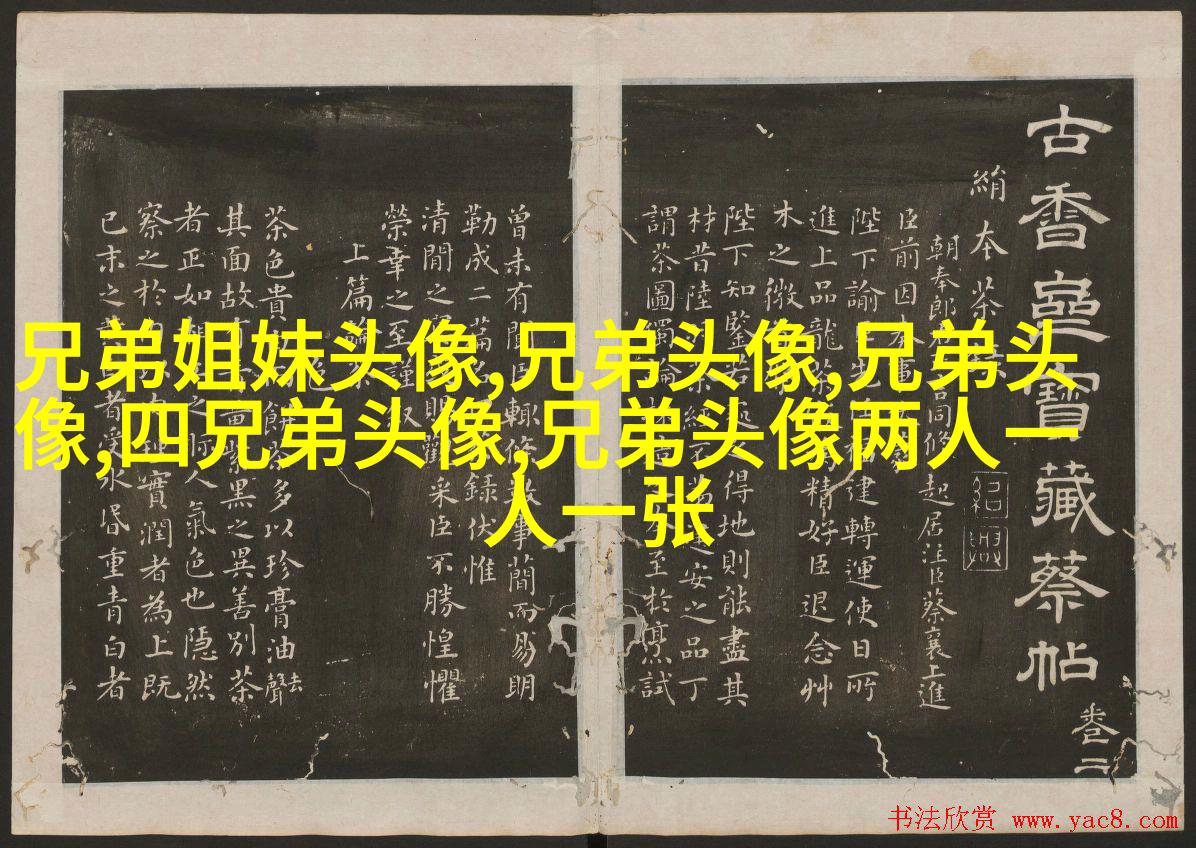 兄弟姐妹头像,兄弟头像,兄弟头
像,四兄弟头像,兄弟头像两人一
人一张
古香齋寶藏蔡帖 卷二
絹本茶
紹興
朝奉郎右言同修起居注臣蔡襄上進
臣前因奏事
陛下諭臣先任福建轉運使日所
進上品龍茶為精好臣退念艸
木之微
陛下知鑒若處之得地則能盡其
材昔陸經不第建安之品丁
謂茶圖獨論之至於烹試
曾未有聞臣輒條數事簡而易明
勒成二篇名錄伏惟
清閒之賜觀采臣不勝惶懼
榮幸之至謹叙
上篇論
茶色貴餅茶多以珍膏油去聲
其面故有黃紫黑之異善別茶
者正如相之眎人氣色也隱然
察之於內理實潤者為上既
已末之黃者受水昏重青白者
书法欣赏 www.yac8.com